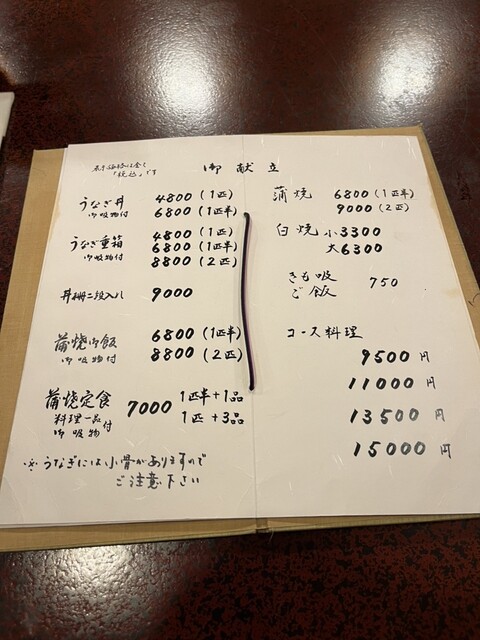 御献立
表示価格は全て
「税込」です
うなぎ丼 4800 (1匹)
御吸物付 6800 (1匹半)
うなぎ重箱 4800 (1匹)
御吸物付 6800 (1匹半)
8800 (2匹)
丼 二段入り 9000
蒲焼御飯 6800 (1匹半)
御吸物付 8800 (2匹)
蒲焼定食 7000 1匹半+1品
料理一品付 1匹+3品
御吸物
※うなぎには小骨がありますので
ご注意下さい
蒲焼 6800 (1匹半)
9000 (2匹)
白焼 小3300
大6300
きも吸 750
ご飯
コース料理
9500円
11000円
13500円
15000円